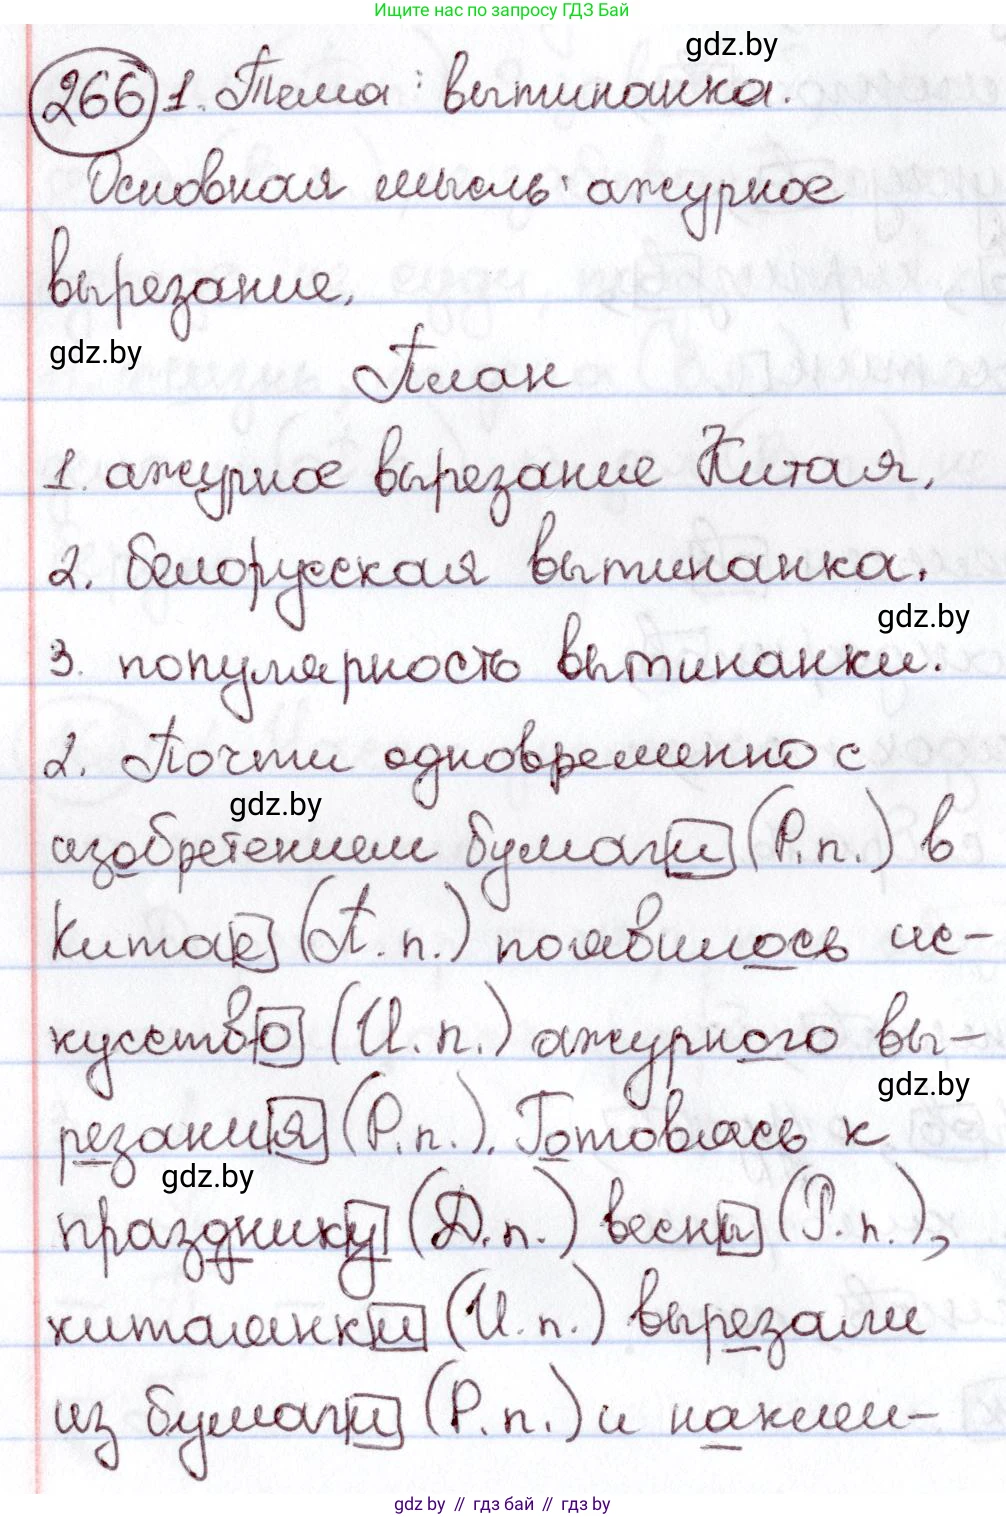 Ищите нас по запросу ГДЗ Бай
gdz.by
266 1. Тема: вытинанка.
Основная мысль: ажурное
вырезание.
gdz.by
План
1. ажурное вырезание Китая.
2. белорусская вытинанка.
gdz.by
3. популярность вытинанки.
2. Почти одновременно с
gdz.by
изобретением бумаги (Р.п.) в
Китае (П.п.) появилось ис-
кусство (И.п.) ажурного вы-
gdz.by
резания (Р.п.). Готовясь к
gdz.by
празднику (Д.п.) весны (Р.п.),
китаянки (И.п.) вырезали
из бумаги (Р.п.) и наклеи-
gdz.by // гдз бай // гдз by